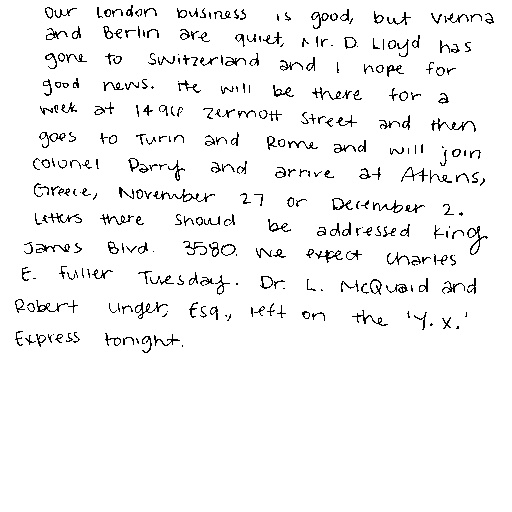 Our London business is good, but Vienna
and Berlin are quiet, Mr. D. Lloyd has
gone to Switzerland and I hope for
good news. He will be there for a
week at 1496 Zermott Street and then
goes to Turin and Rome and will join
Colonel Parry and arrive at Athens,
Greece, November 27 or December 2.
Letters there should be addressed King
James Blvd. 3580. We expect Charles
E. Fuller Tuesday. Dr. L. McQuaid and
Robert Unger, Esq., left on the 'Y.X.'
Express tonight.